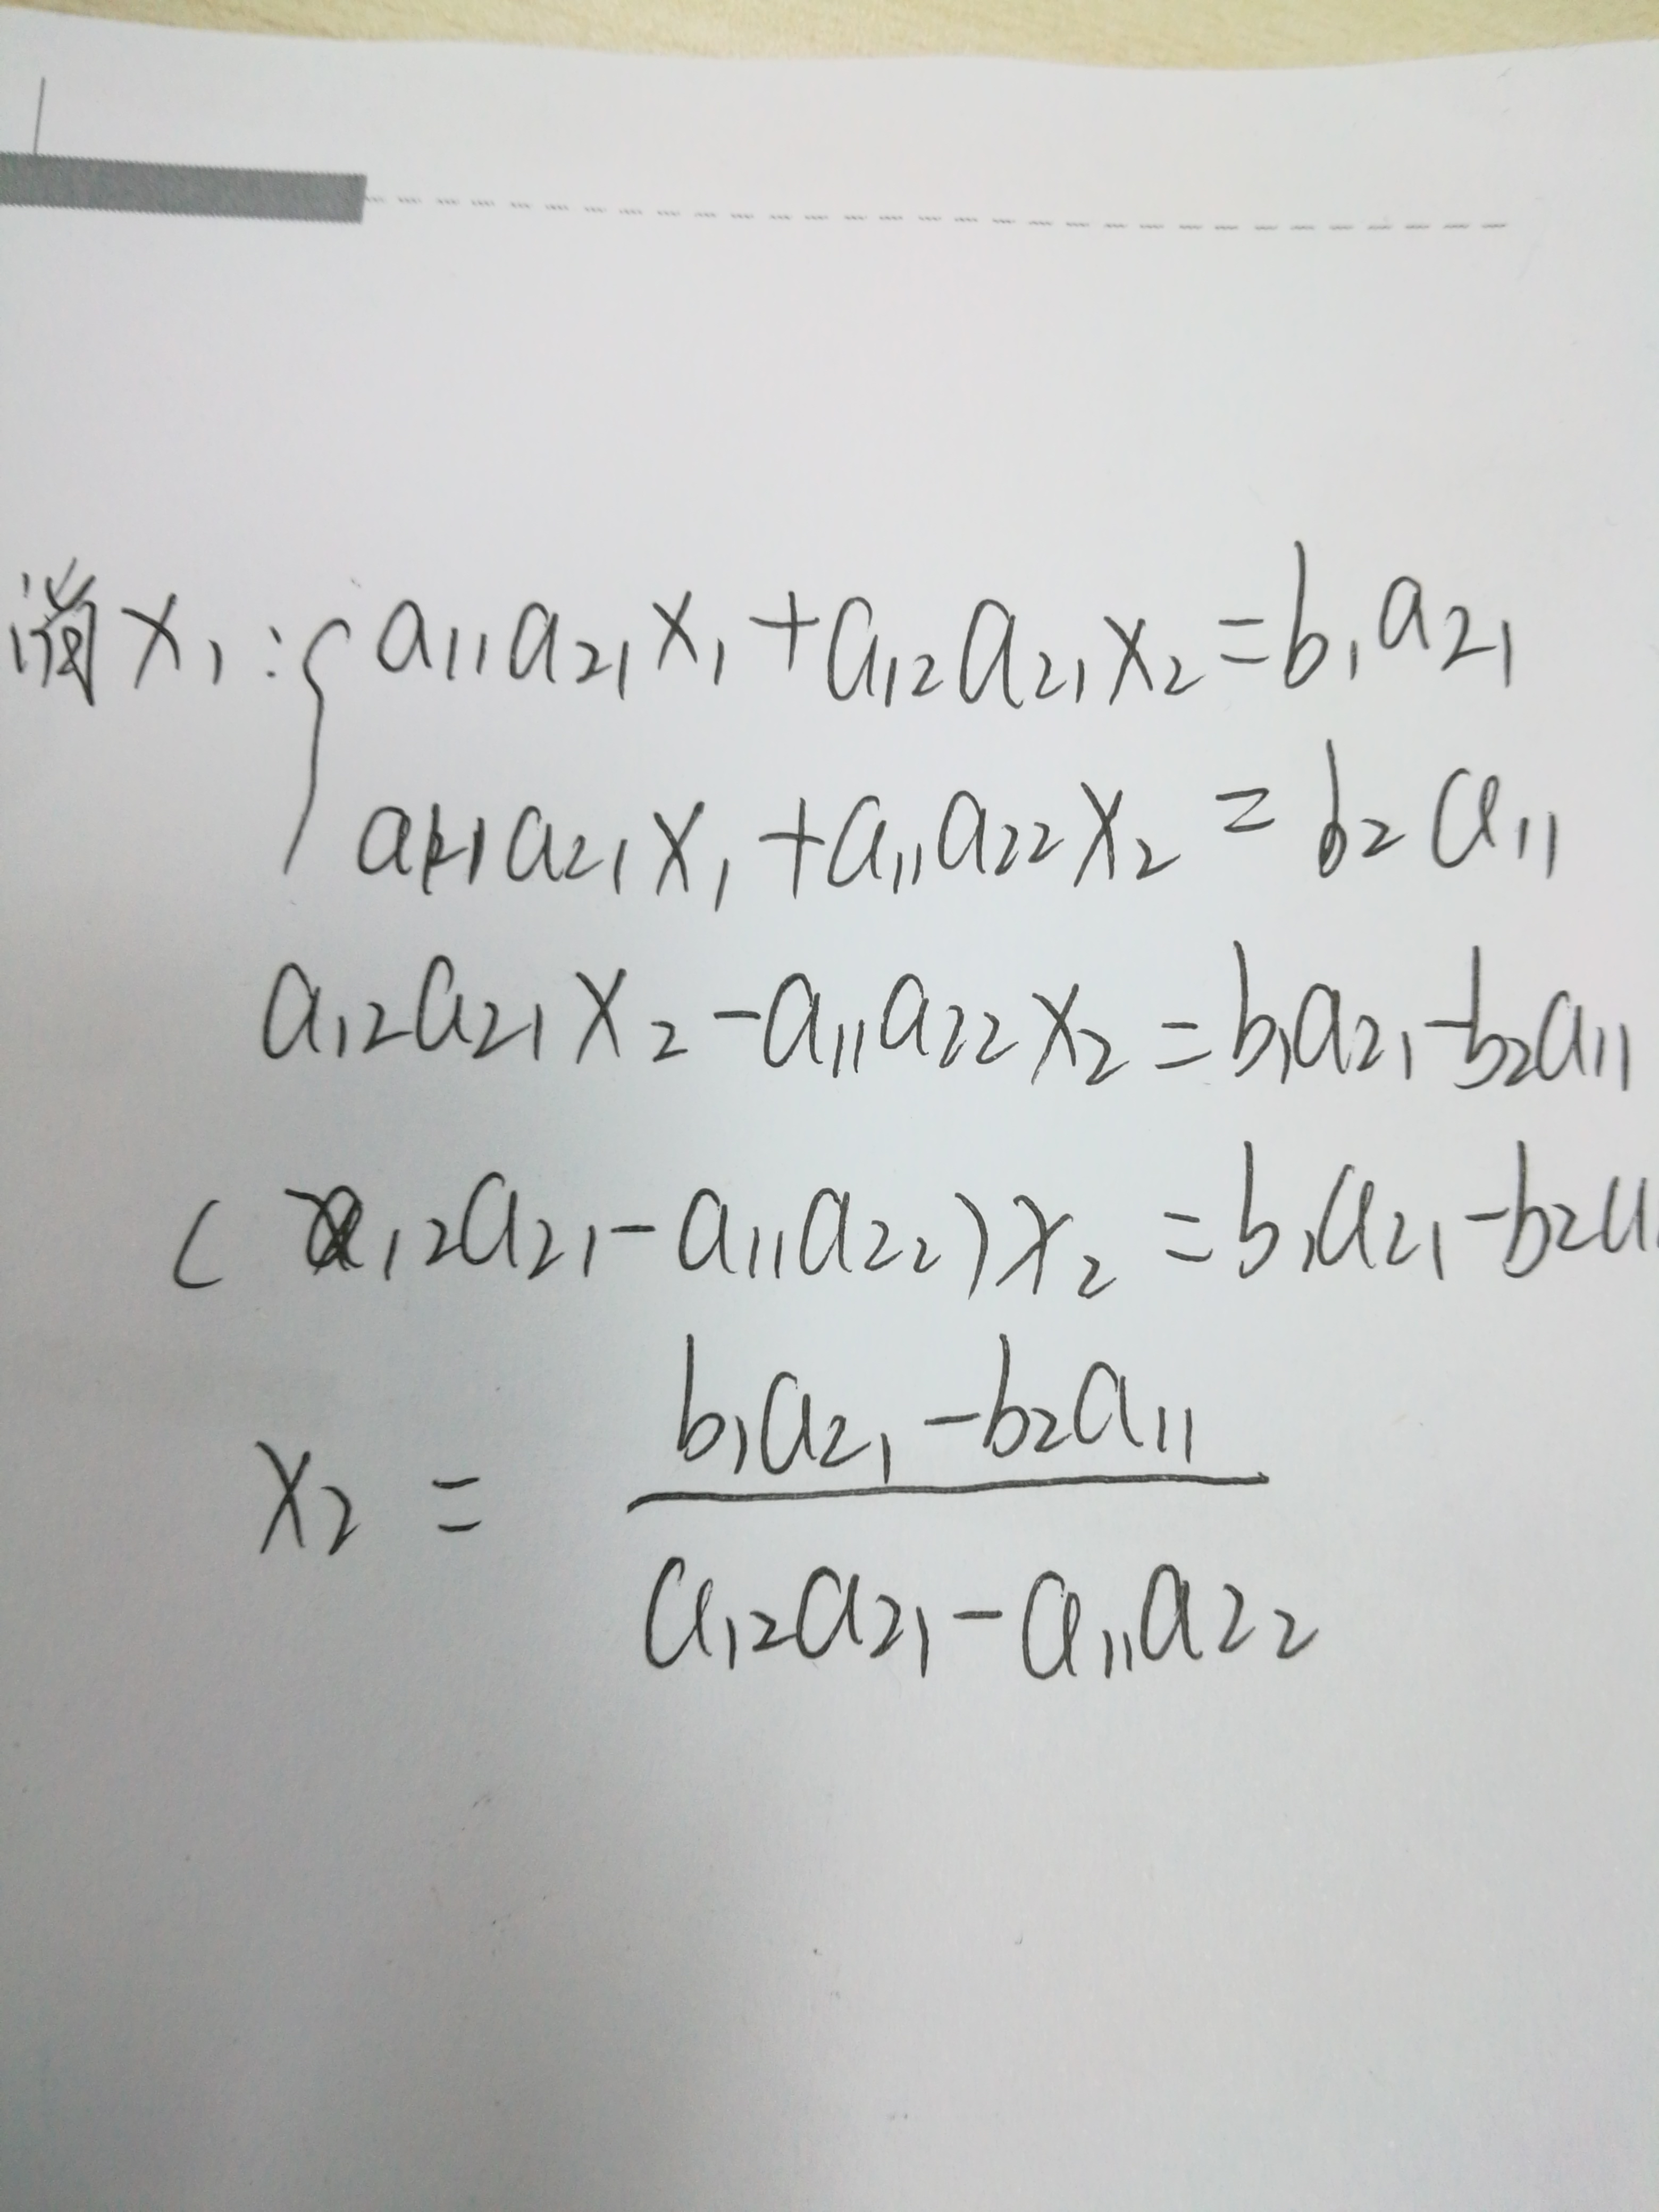 消x₁: { a₁₁a₂₁x₁+a₁₂a₂₁x₂=b₁a₂₁
a₁₁a₂₁x₁+a₁₁a₂₂x₂=b₂a₁₁
a₁₂a₂₁x₂-a₁₁a₂₂x₂=b₁a₂₁-b₂a₁₁
(a₁₂a₂₁-a₁₁a₂₂)x₂=b₁a₂₁-b₂a₁
x₂ = \frac{b₁a₂₁-b₂a₁₁}{a₁₂a₂₁-a₁₁a₂₂}